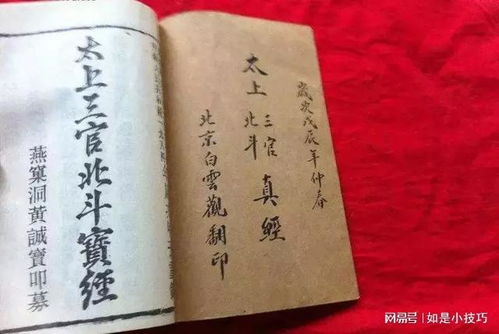 歲次戊辰年仲春
太上三官北斗真經
北京白雲觀翻印
太上三官北斗寶經
燕窠洞黃誠寶叩募
网易号 | 如是小技巧